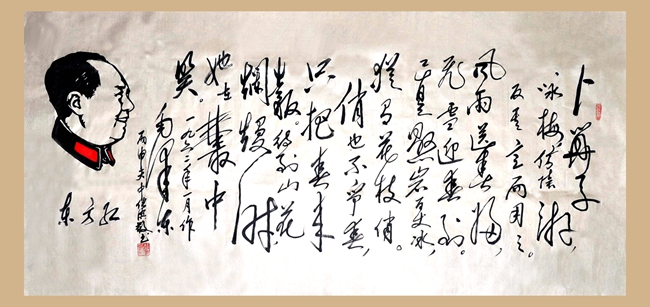 卜算子
咏梅 读陆游,
反其意而用之。
風雨送春归,
飛雪迎春到。
已是悬岩百丈冰,
犹有花枝俏。
俏也不争春,
只把春来
報。待到山花
爛熳时,
她在叢中
笑。
一九六二年一月作
毛泽东
东方红